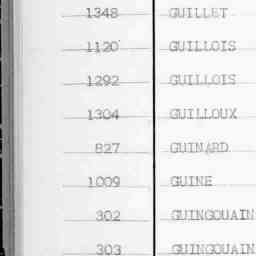 1348 GUILLET
1120 GUILLOIS
1292 GUILLOIS
1304 GUILLOUX
827 GUINARD
1009 GUINE
302 GUINGOUAIN
303 GUINGOUAIN